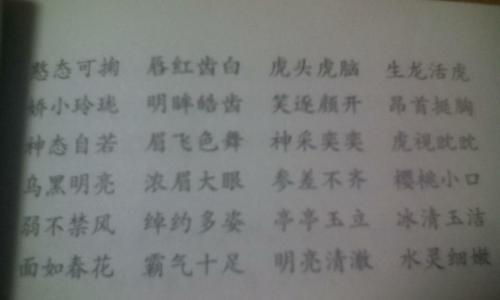 憨态可掬 唇红齿白 虎头虎脑 生龙活虎
娇小玲珑 明眸皓齿 笑逐颜开 昂首挺胸
神态自若 眉飞色舞 神采奕奕 虎视眈眈
乌黑明亮 浓眉大眼 参差不齐 樱桃小口
弱不禁风 绰约多姿 亭亭玉立 冰清玉洁
面如春花 霸气十足 明亮清澈 水灵细嫩